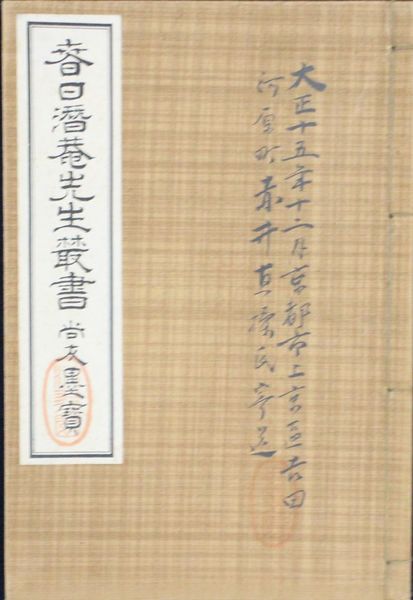 大正十五年十二月京都市上京区吉田
河原町青井直標氏寄送
春日潛菴先生叢書 尚友墨寶